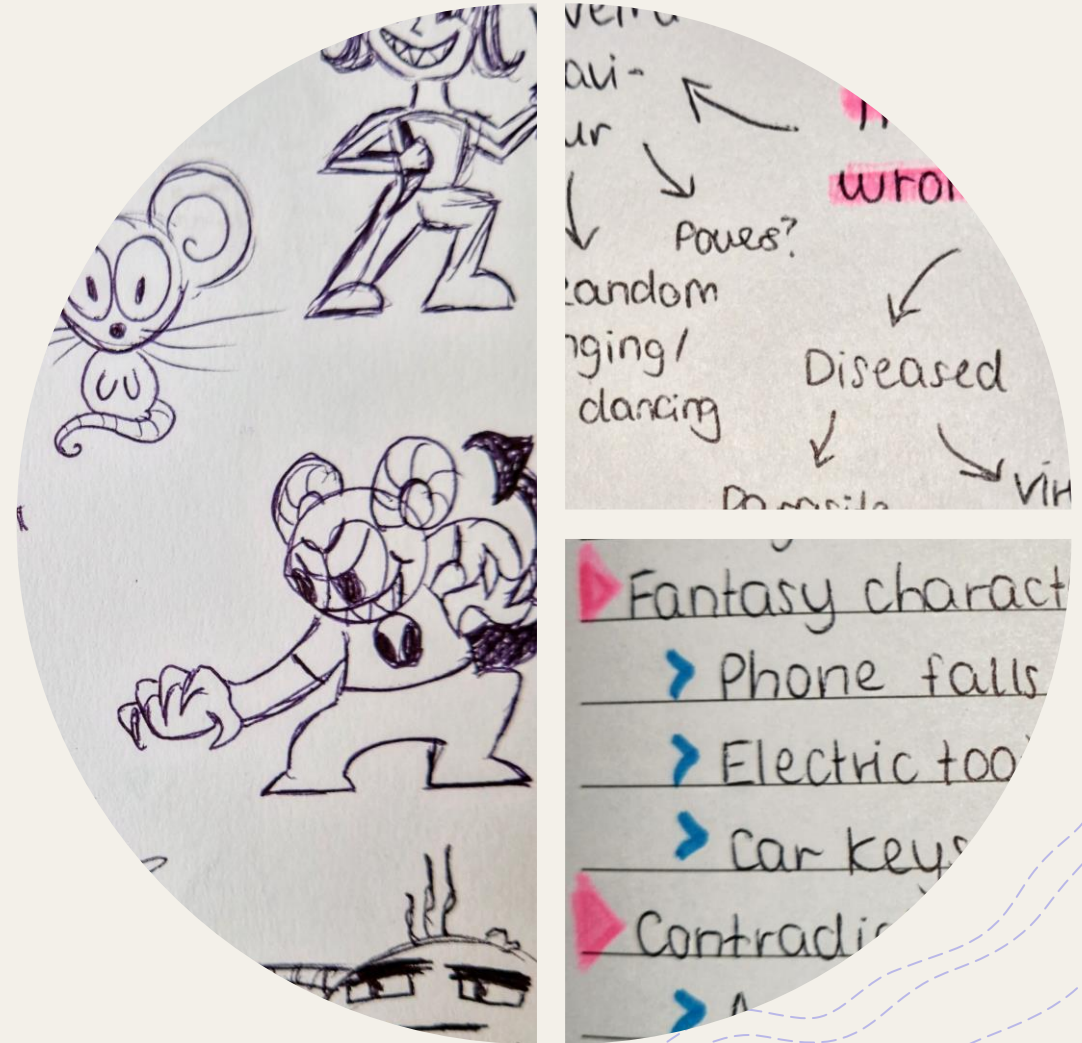 wron
Poues?
andom
ging/
dancing
Diseased
Vir
Fantasy charact
Phone falls
Electric too
Car keys
Contradic